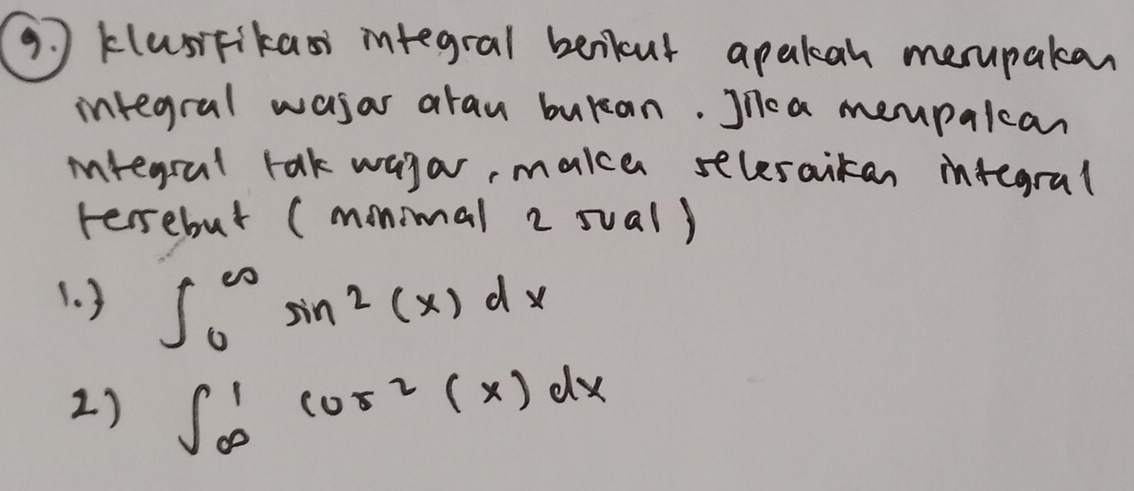 9.) klasifikasi integral berikut apakah merupakan
integral wajar atau bukan. Jika merupakan
integral tak wajar, maka selesaikan integral
tersebut ( minimal 2 soal )
1.) ∫₀^∞ sin² (x) dx
2.) ∫_∞^1 cos² (x) dx